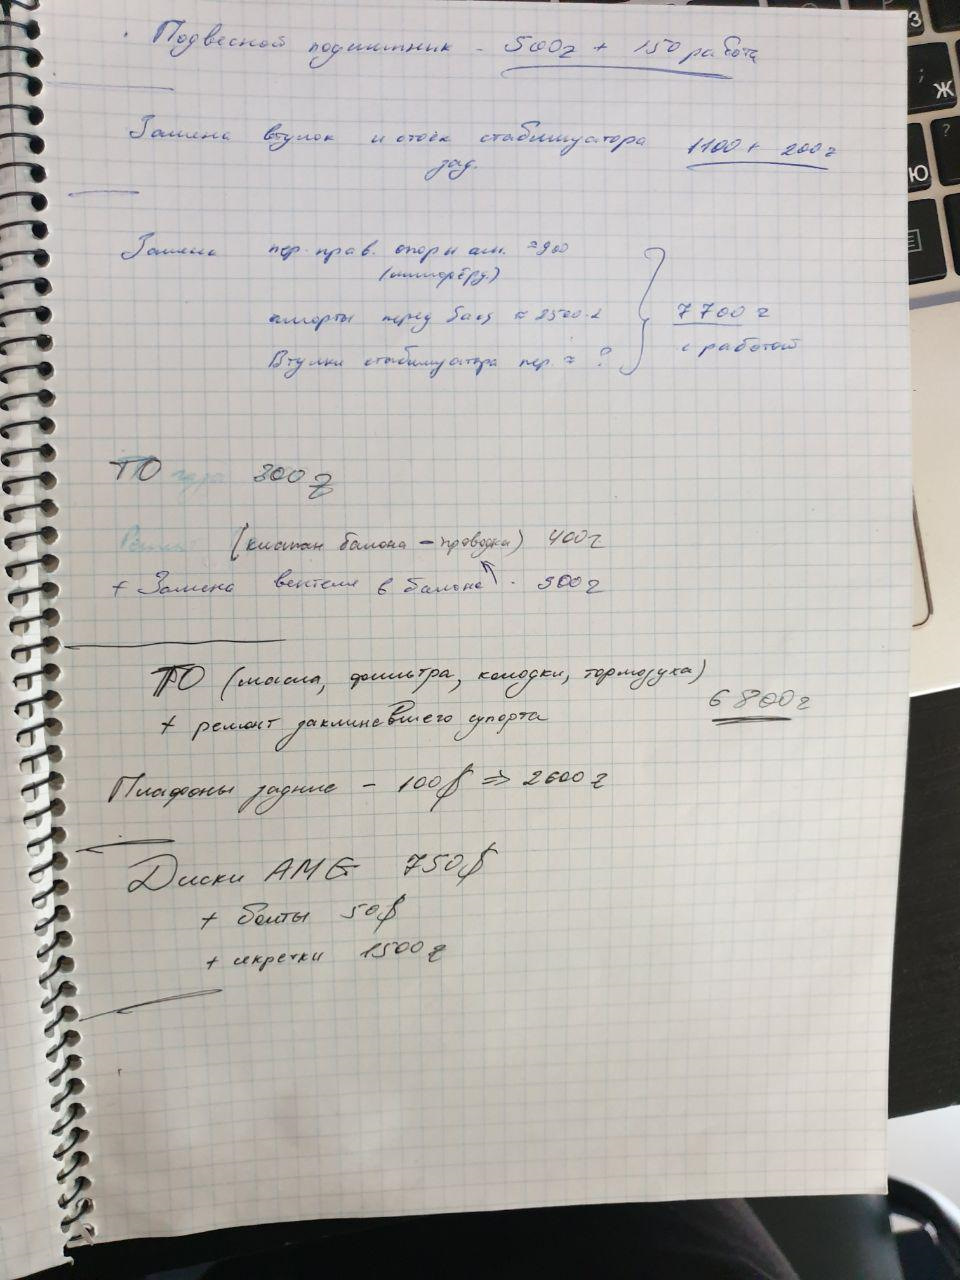 Подвесной подшипник - 500г + 150 работа
Замена втулок и стоек стабилизатора 1100 + 200г
зад.
Замена пер. прав. опоры ам. ≈900
аморты перед ≈ 2500
Втулки стабилизатора пер. ≈ ?
7700 г
с работой
ТО 300г
(клапан балона - проводка) 400г
+ Замена вентеля в балоне. 900г
ТО (масла, фильтра, колодки, тормозуха)
+ ремонт заклиневшего супорта 6800г
Плафоны задние - 100$ => 2600г
Диски AMG 750$
+ болты 50$
+ секретки 1500г
З
Ж
Ю
?
;